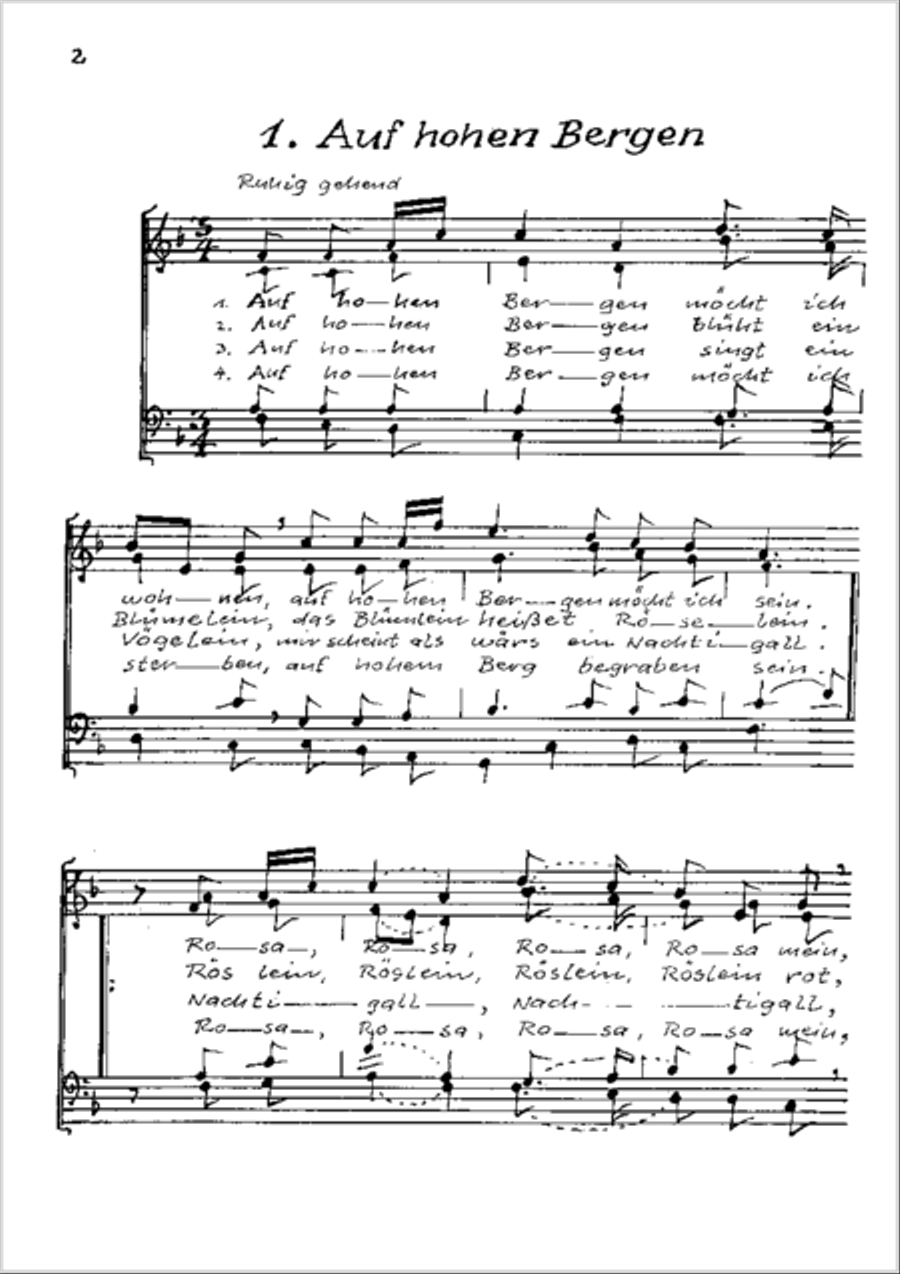 2
1. Auf hohen Bergen
Ruhig gehend
3/4
1. Auf ho-hen Ber-gen möcht ich
2. Auf ho-hen Ber-gen blüht ein
3. Auf ho-hen Ber-gen singt ein
4. Auf ho-hen Ber-gen möcht ich
3/4
woh-nen, auf ho-hen Ber-gen möcht ich sein.
Blümelein, das Blümlein heißet Rö-se-lein.
Vögelein, mir scheint als wärs ein Nachti-gall.
ster-ben, auf hohem Berg begraben sein.
Ro-sa-, Ro-sa, Ro-sa, Ro-sa mein,
Rös lein, Röslein, Röslein, Röslein rot,
Nachti-gall-, Nach-tigall,
Ro-sa-, Ro-sa, Ro-sa, Ro-sa mein,